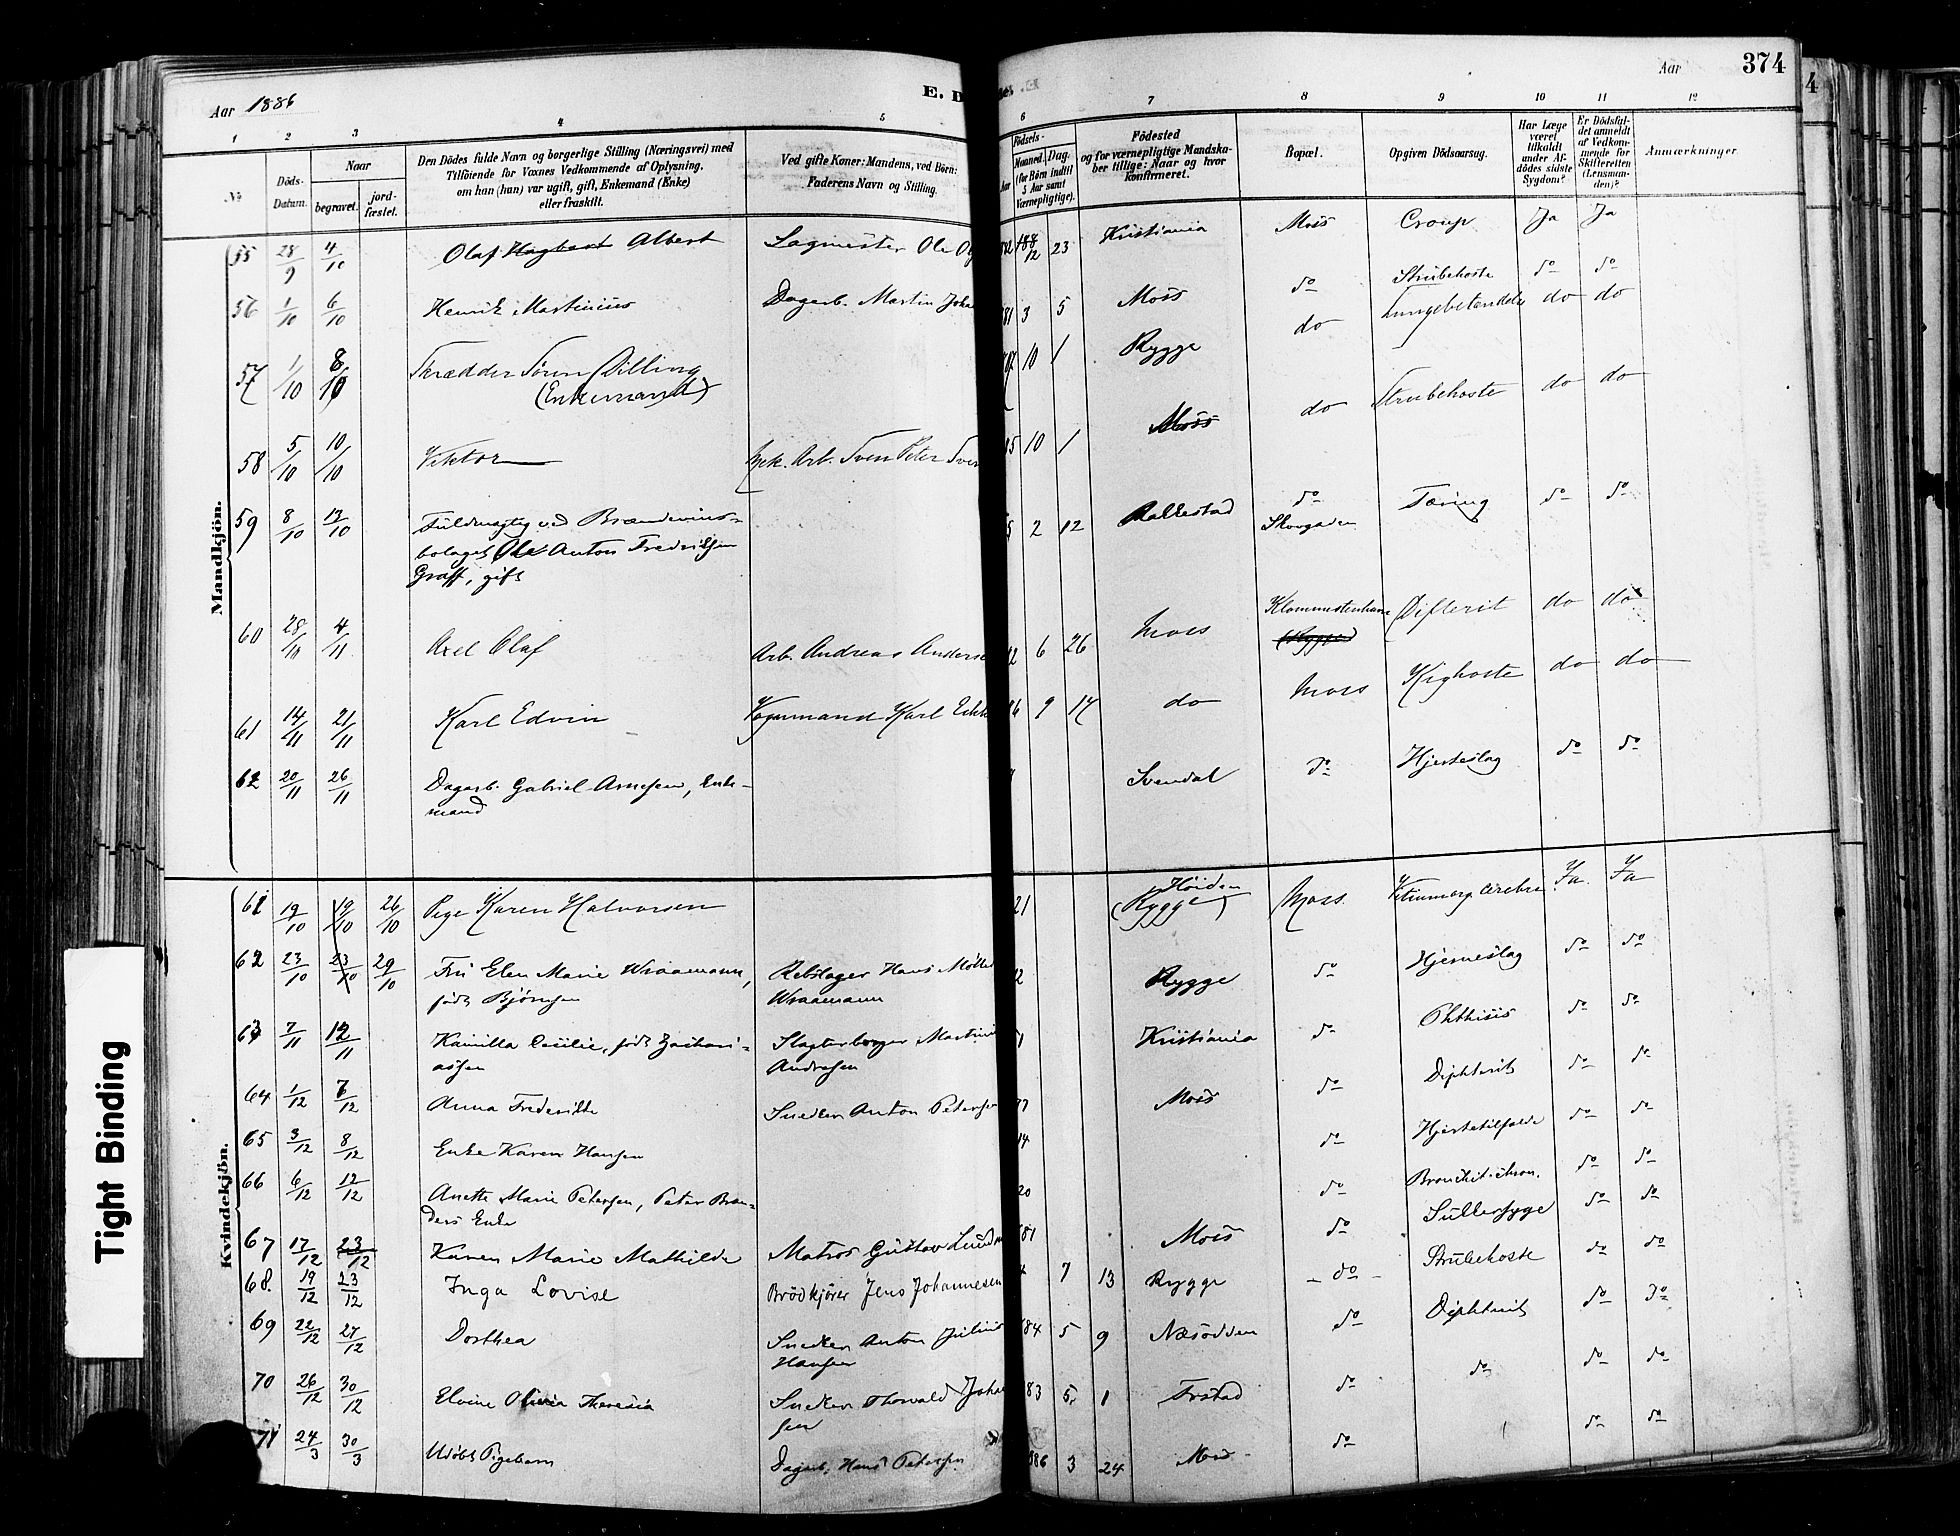 Aar 1886
E. D
Aar
374
1 2 3 4 5 6 7 8 9 10 11 12
No
Döds-Datum.
Naar
begravet.
jordfæstet.
Den Dödes fulde Navn og borgerlige Stilling (Næringsvei) med
Tilföiende for Voxnes Vedkommende af Oplysning,
om han (hun) var ugift, gift, Enkemand (Enke)
eller fraskilt.
Ved gifte Koner: Mandens, ved Börn:
Faderens Navn og Stilling.
Födsels-
Aar Maaned. Dag.
(for Börn indtil
5 Aar samt
Værnepligtige).
Födested
og for værnepligtige Mandska-
ber tillige: Naar og hvor
konfirmeret.
Bopæl.
Opgiven Dödsaarsag.
Har Læge
været
tilkaldt
under Af-
dödes sidste
Sygdom?
Er Dödsfal-
det anmeldt
af Vedkom-
mende for
Skifteretten
(Lensman-
den)?
Anmærkninger.
Mandkjön.
55 28/9 4/10 Olaf Hagbart Albert Sagmester Ole 12 23 Kristiania Moss Croup Ja Ja
56 1/10 6/10 Henrik Martinius Dagarb. Martin Joha 81 3 5 Moss do Strubehoste do do
57 1/10 8/10 Skrædder Sören Dilling 10 1 Rygge do Lungebetændelse do do
(Enkemand)
58 5/10 10/10 Viktor Mek. Arb. Sven Peter Sven 85 10 1 Moss do Strubehoste do do
59 8/10 13/10 Fuldmægtig ved Brændevins- 2 12 Rakkestad do Tæring do do
bolaget Ole Anton Fredriksen Skovgaden
Graff, gift
60 28/10 4/11 Axel Olaf Arb. Andreas Anderse 82 6 26 Moss Klommestenhavn Difterit do do
(Rygge)
61 14/11 21/11 Karl Edvin Vognmand Karl 86 9 17 do Moss Kighoste do do
62 20/11 26/11 Dagarb. Gabriel Arnesen, Enke- Svendal do Hjerteslag do do
mand
Kvindekjön.
61 19/10 19/10 26/10 Pige Karen Halvorsen 21 Höiden Moss. Ja. Ja
(Rygge)
62 23/10 23/10 29/10 Fru Elen Marie Wraamann, Rebslager Hans Mölle Rygge do Hjerneslag do do
födt Björnsen Wraamann
63 7/11 12/11 Kamilla Cecilie, födt Zachari- Slagterborger Martini Kristiania do Phthisis do do
assen Andresen
64 1/12 7/12 Anna Frederikke Snedker Anton Peterse Moss do Diphterit do do
65 3/12 8/12 Enke Karen Hansen 14 do Hjertetilfælde do do
66 6/12 12/12 Anette Marie Petersen, Peter Bran- 20 do Bronchit. chron. do do
ders Enke
67 17/12 23/12 Karen Marie Mathilde Matros Gustav Lund 81 Moss do Sullersyge do do
68. 19/12 23/12 Inga Lovise Brödkjörer Jens Johannesen 7 13 Rygge - do - Strubehoste do do
69 22/12 27/12 Dorthea Snedker Anton Julius 84 5 9 Næsodden do Diphterit do do
Hansen
70 26/12 30/12 Elvine Olivia Theresia Snedker Thorvald Joha 83 5 1 Irstad do do do do
sen
71 24/3 30/3 Udöbt Pigebarn Dagarb. Hans Petersen 886 3 24 Moss do do do
Tight Binding
4